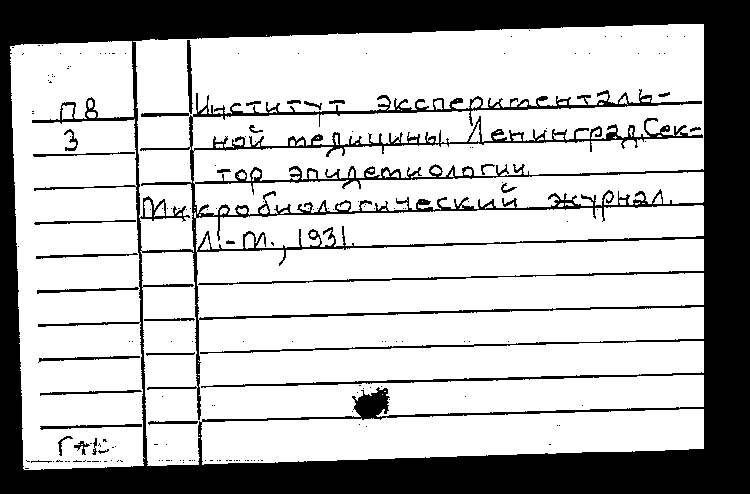 П8 Институт эксперименталь-
3 ной медицины. Ленинград. Сек-
тор эпидемиологии.
Микробиологический журнал.
Л.-М., 1931.